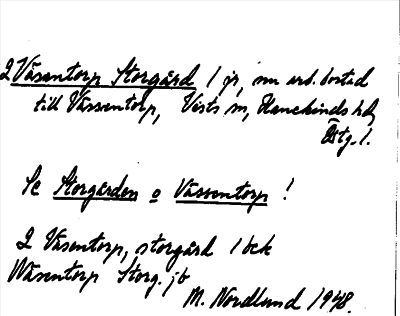 2 Väsentorp Storgård / jr, nu arb. bostad
till Vässentorp, Viists sn, Hanekinds hd,
Östg. l.
Se Storgården o Vässentorp !
2 Väsentorp, storgård / bek
Wäsentorp Storg. jb
M. Nordlund 1948.